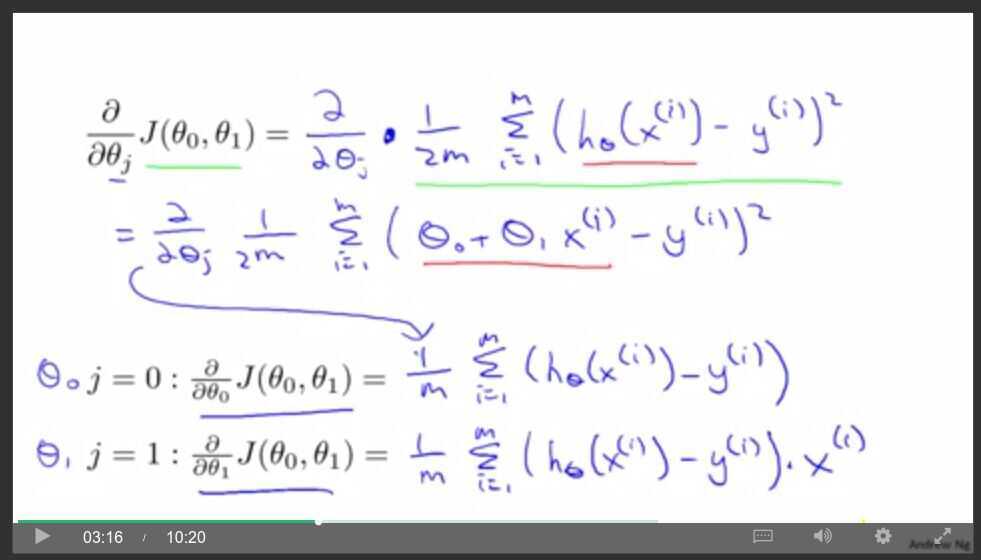 ∂/∂θⱼ J(θ₀, θ₁) = ∂/∂θⱼ · 1/2m Σᵢ₌₁ᵐ (hθ(x⁽ⁱ⁾) − y⁽ⁱ⁾)²
= ∂/∂θⱼ 1/2m Σᵢ₌₁ᵐ (θ₀ + θ₁ x⁽ⁱ⁾ − y⁽ⁱ⁾)²
θ₀ j = 0 : ∂/∂θ₀ J(θ₀, θ₁) = 1/m Σᵢ₌₁ᵐ (hθ(x⁽ⁱ⁾) − y⁽ⁱ⁾)
θ₁ j = 1 : ∂/∂θ₁ J(θ₀, θ₁) = 1/m Σᵢ₌₁ᵐ (hθ(x⁽ⁱ⁾) − y⁽ⁱ⁾) · x⁽ⁱ⁾
03:16 / 10:20
Andrew Ng